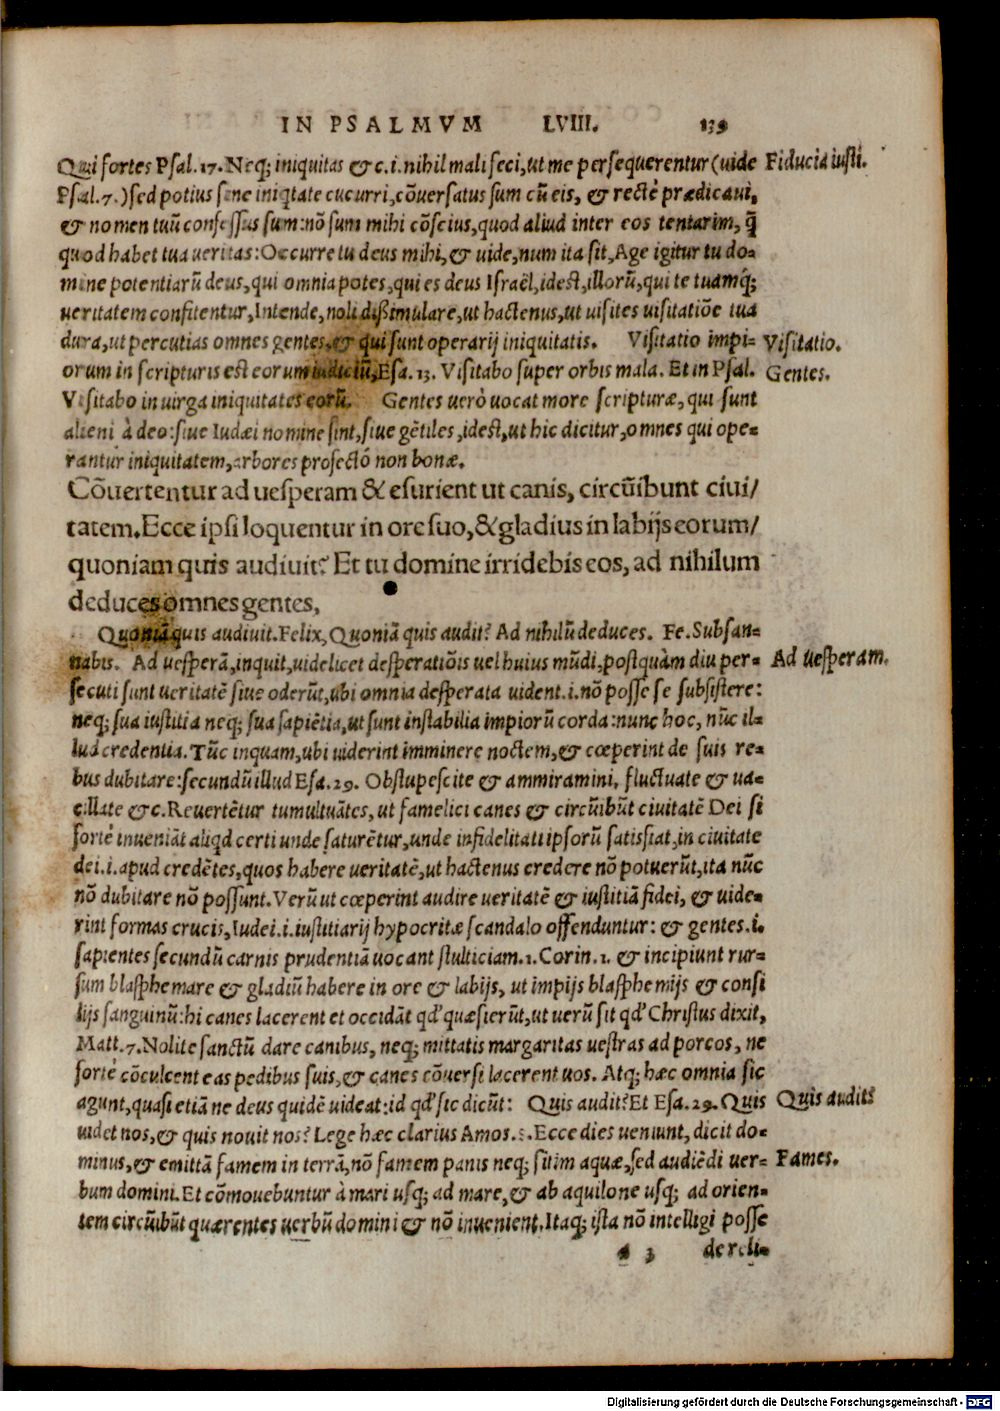 IN PSALMVM LVIII. 139
Qui fortes Psal. 17. Neq; iniquitas & c.i. nihil mali feci, ut me persequerentur (uide Fiducia iusti.
Psal. 7.) sed potius sine iniqtate cucurri, cõuersatus sum cũ eis, & rectè prædicaui,
& nomen tuũ confessus sum: nõ sum mihi cõscius, quod aliud inter eos tentarim, q̃
quod habet tua ueritas: Occurre tu deus mihi, & uide, num ita sit, Age igitur tu do-
mine potentiarũ deus, qui omnia potes, qui es deus Israël, idest, illorũ, qui te tuamq́;
ueritatem confitentur, Intende, noli dißimulare, ut hactenus, ut uisites uisitatiõe tua
dura, ut percutias omnes gentes, & qui sunt operarij iniquitatis. Visitatio impi- Visitatio.
orum in scripturis est eorum iudiciũ, Esa. 13. Visitabo super orbis mala. Et in Psal. Gentes.
Visitabo in uirga iniquitates eorũ. Gentes uerò uocat more scripturæ, qui sunt
alieni à deo: siue Iudæi nomine sint, siue gẽtiles, idest, ut hic dicitur, omnes qui ope-
rantur iniquitatem, arbores profectó non bonæ.
Cõuertentur ad uesperam & esurient ut canis, circũibunt ciui/
tatem. Ecce ipsi loquentur in ore suo, & gladius in labijs eorum/
quoniam quis audiuit? Et tu domine irridebis eos, ad nihilum
deduces omnes gentes,
Quoniã quis audiuit. Felix, Quoniã quis audit? Ad nihilũ deduces. Fe. Subsan-
nabis. Ad uesperã, inquit, uidelicet desperatiõis uel huius mũdi, postquàm diu per- Ad uesperam.
secuti sunt ueritatẽ siue oderũt, ubi omnia desperata uident .i. nõ posse se subsistere:
neq; sua iustitia neq; sua sapiẽtia, ut sunt instabilia impiorũ corda: nunc hoc, nũc il-
lud credentia. Tũc inquam, ubi uiderint imminere noctem, & cœperint de suis re-
bus dubitare: secundũ illud Esa. 29. Obstupescite & ammiramini, fluctuate & ua-
cillate & c. Reuertẽtur tumultuãtes, ut famelici canes & circũibũt ciuitatẽ Dei si
fortè inueniãt aliqd certi unde saturẽtur, unde infidelitati ipsorũ satisfiat, in ciuitate
dei .i. apud credẽtes, quos habere ueritatẽ, ut hactenus credere nõ potuerũt, ita nũc
nõ dubitare nõ possunt. Verũ ut cœperint audire ueritatẽ & iustitiã fidei, & uide-
rint formas crucis, Iudei .i. iustitiarij hypocritæ scandalo offenduntur: & gentes .i.
sapientes secundũ carnis prudentiã uocant stulticiam. 1. Corin. 1. & incipiunt rur-
sum blasphemare & gladiũ habere in ore & labijs, ut impijs blasphemijs & consi
lijs sanguinũ: hi canes lacerent et occidãt qd' quæsierũt, ut uerũ sit qd' Christus dixit,
Matt. 7. Nolite sanctũ dare canibus, neq; mittatis margaritas uestras ad porcos, ne
fortè cõculcent eas pedibus suis, & canes cõuersi lacerent uos. Atq; hæc omnia sic
agunt, quasi etiã ne deus quidẽ uideat: id qd' sic dicũt: Quis audit? Et Esa. 29. Quis Quis audit?
uidet nos, & quis nouit nos? Lege hæc clarius Amos. Ecce dies ueniunt, dicit do-
minus, & emittã famem in terrã, nõ famem panis neq; sitim aquæ, sed audiẽdi uer- Fames.
bum domini. Et cõmouebuntur à mari usq; ad mare, & ab aquilone usq; ad orien-
tem circũibũt quærentes uerbũ domini & nõ inuenient. Itaq; ista nõ intelligi posse
3 dereli-
Digitalisierung gefördert durch die Deutsche Forschungsgemeinschaft - DFG